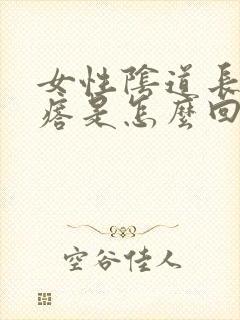 女性陰道長
痞是怎麼回
空谷佳人